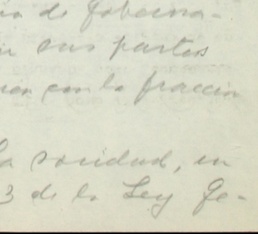 de Goberna-
sus partes
con la fraccion
la socidud, en
3 de la Ley Ge-